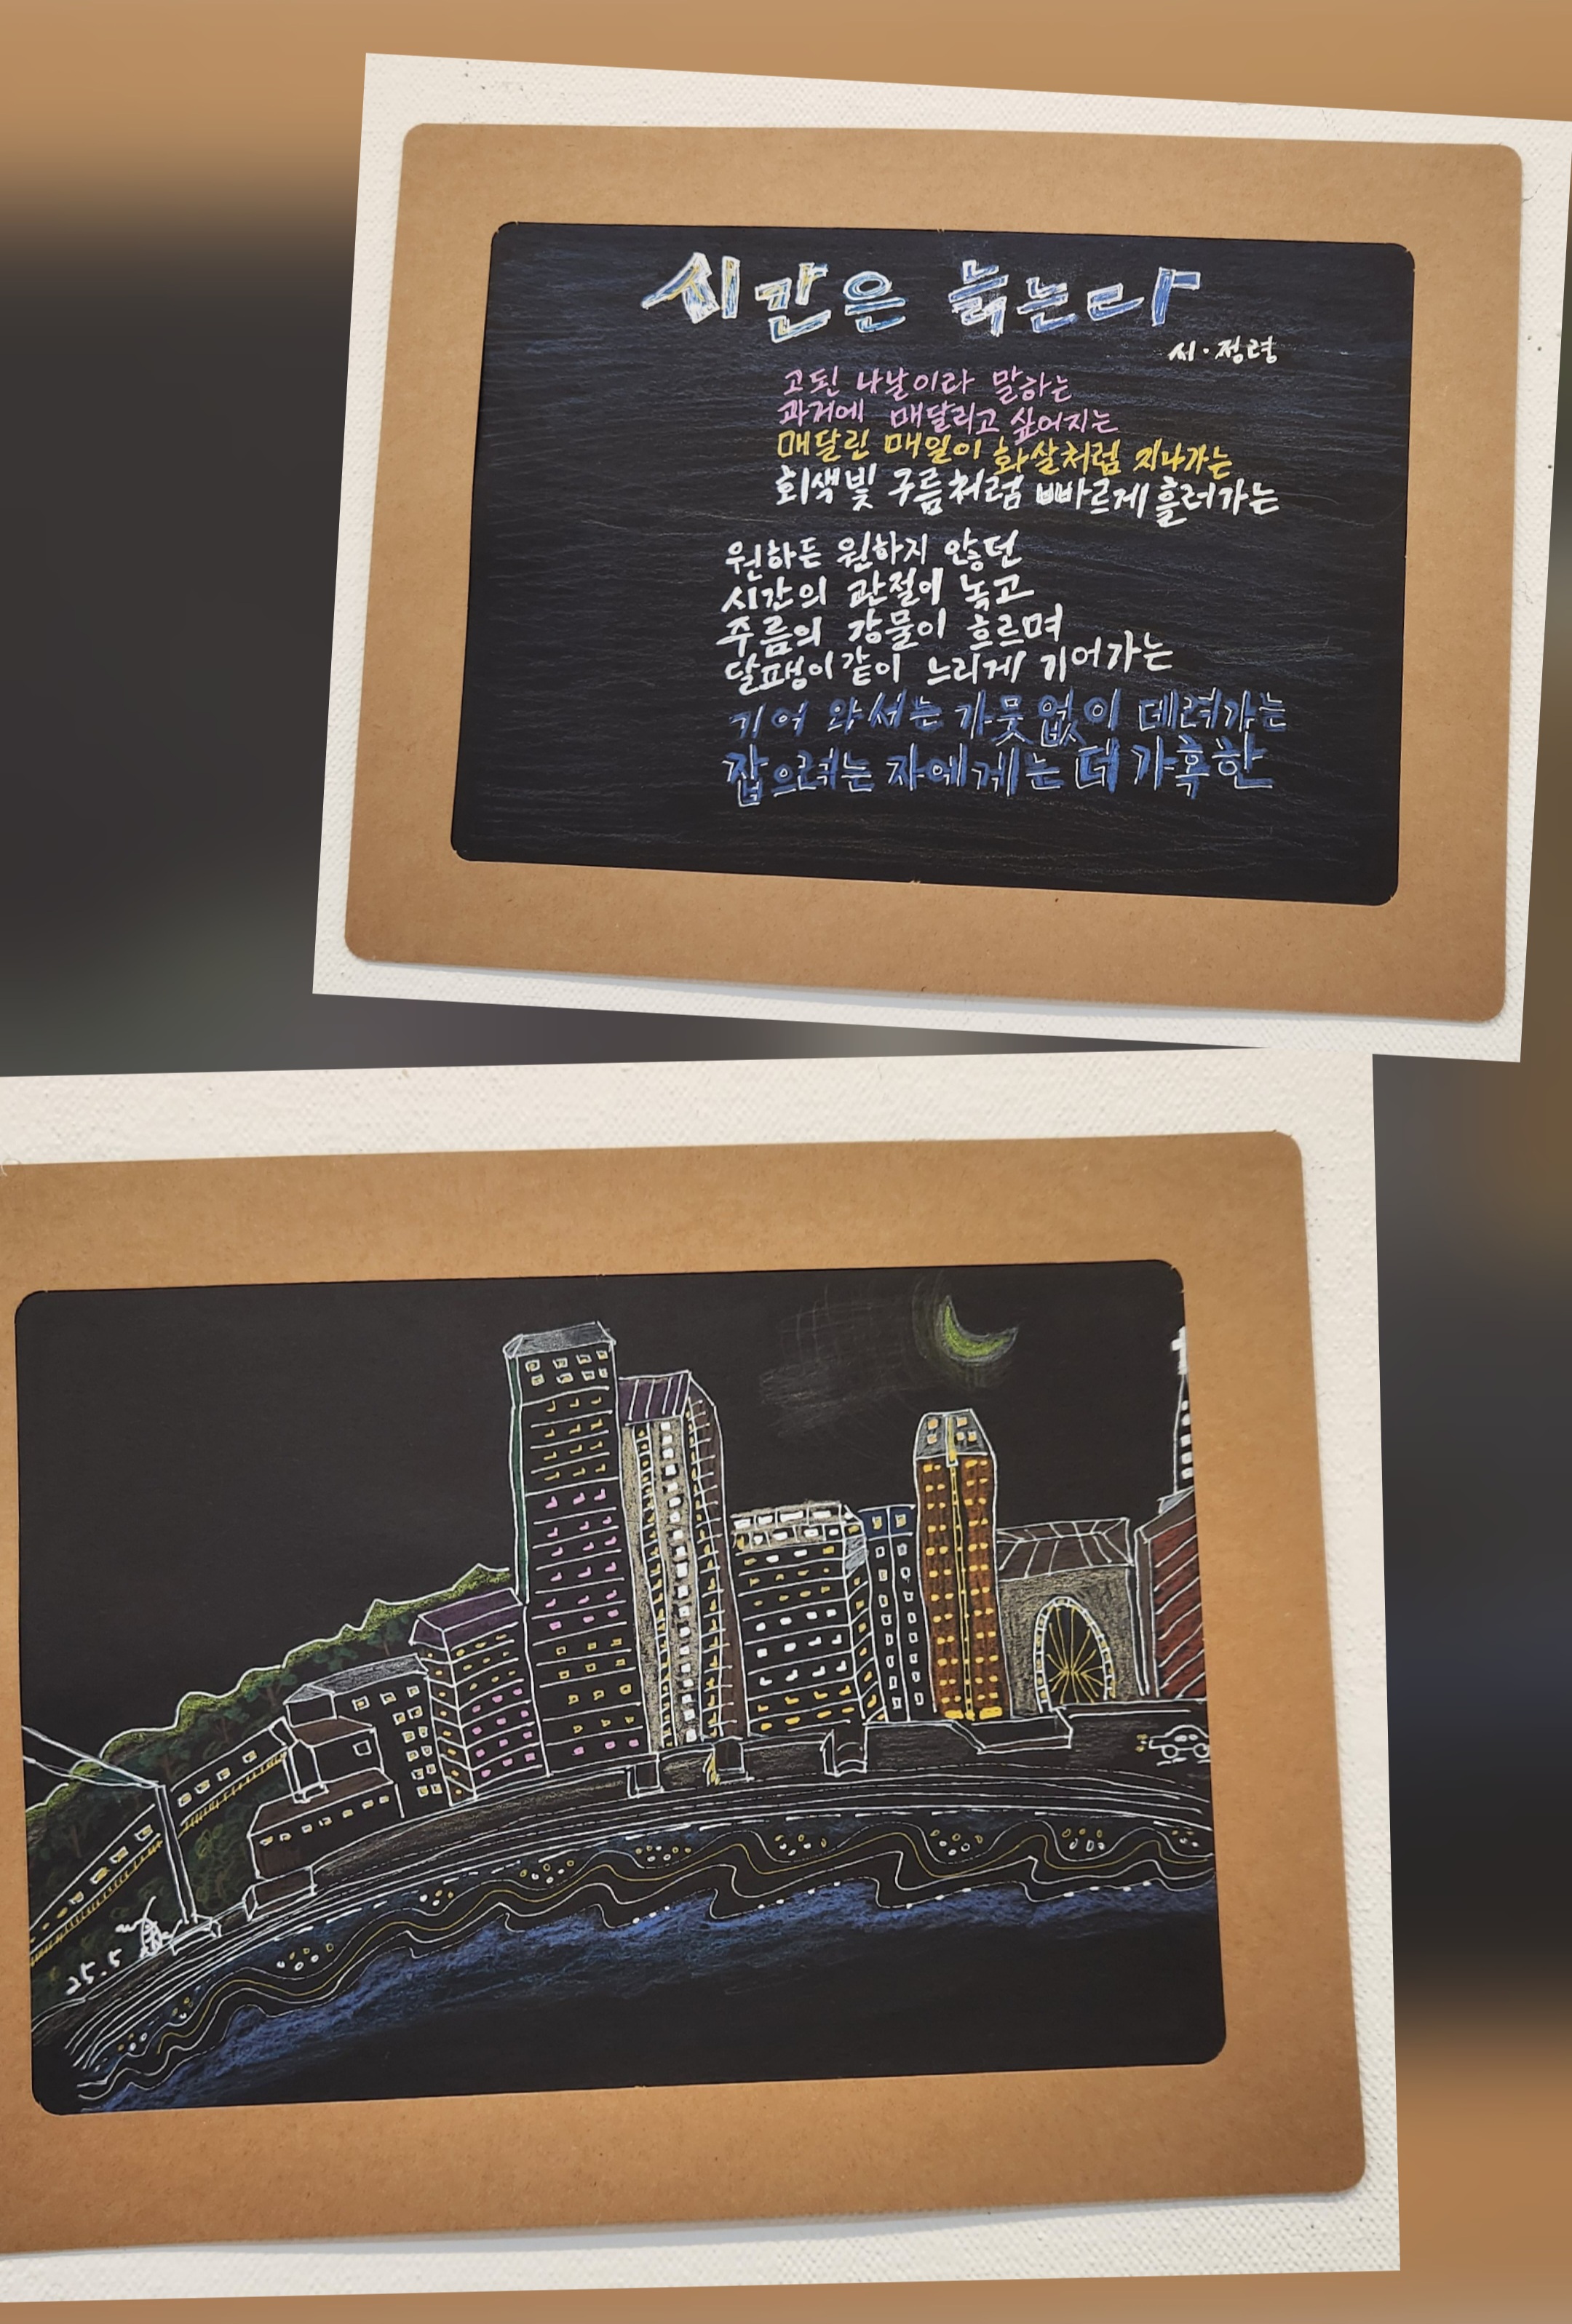 시간은 늙는다
시·정령
고된 나날이라 말하는
과거에 매달리고 싶어지는
매달린 매일이 화살처럼 지나가는
회색빛 구름처럼 빠르게 흘러가는
원하든 원하지 않던
시간의 관절이 녹고
주름의 강물이 흐르며
달팽이같이 느리게 기어가는
기어 와서는 가뭇없이 데려가는
잡으려는 자에게는 더 가혹한
25.5